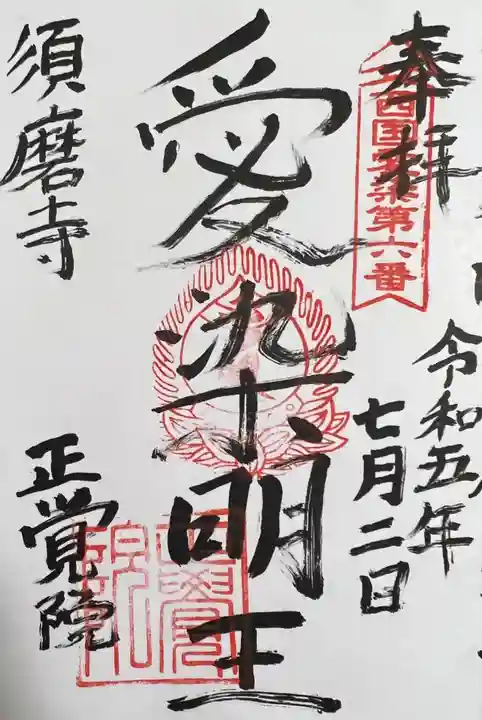 奉拝
西国愛染第六番
令和五年
七月二日
愛染明王
須磨寺
正覚院